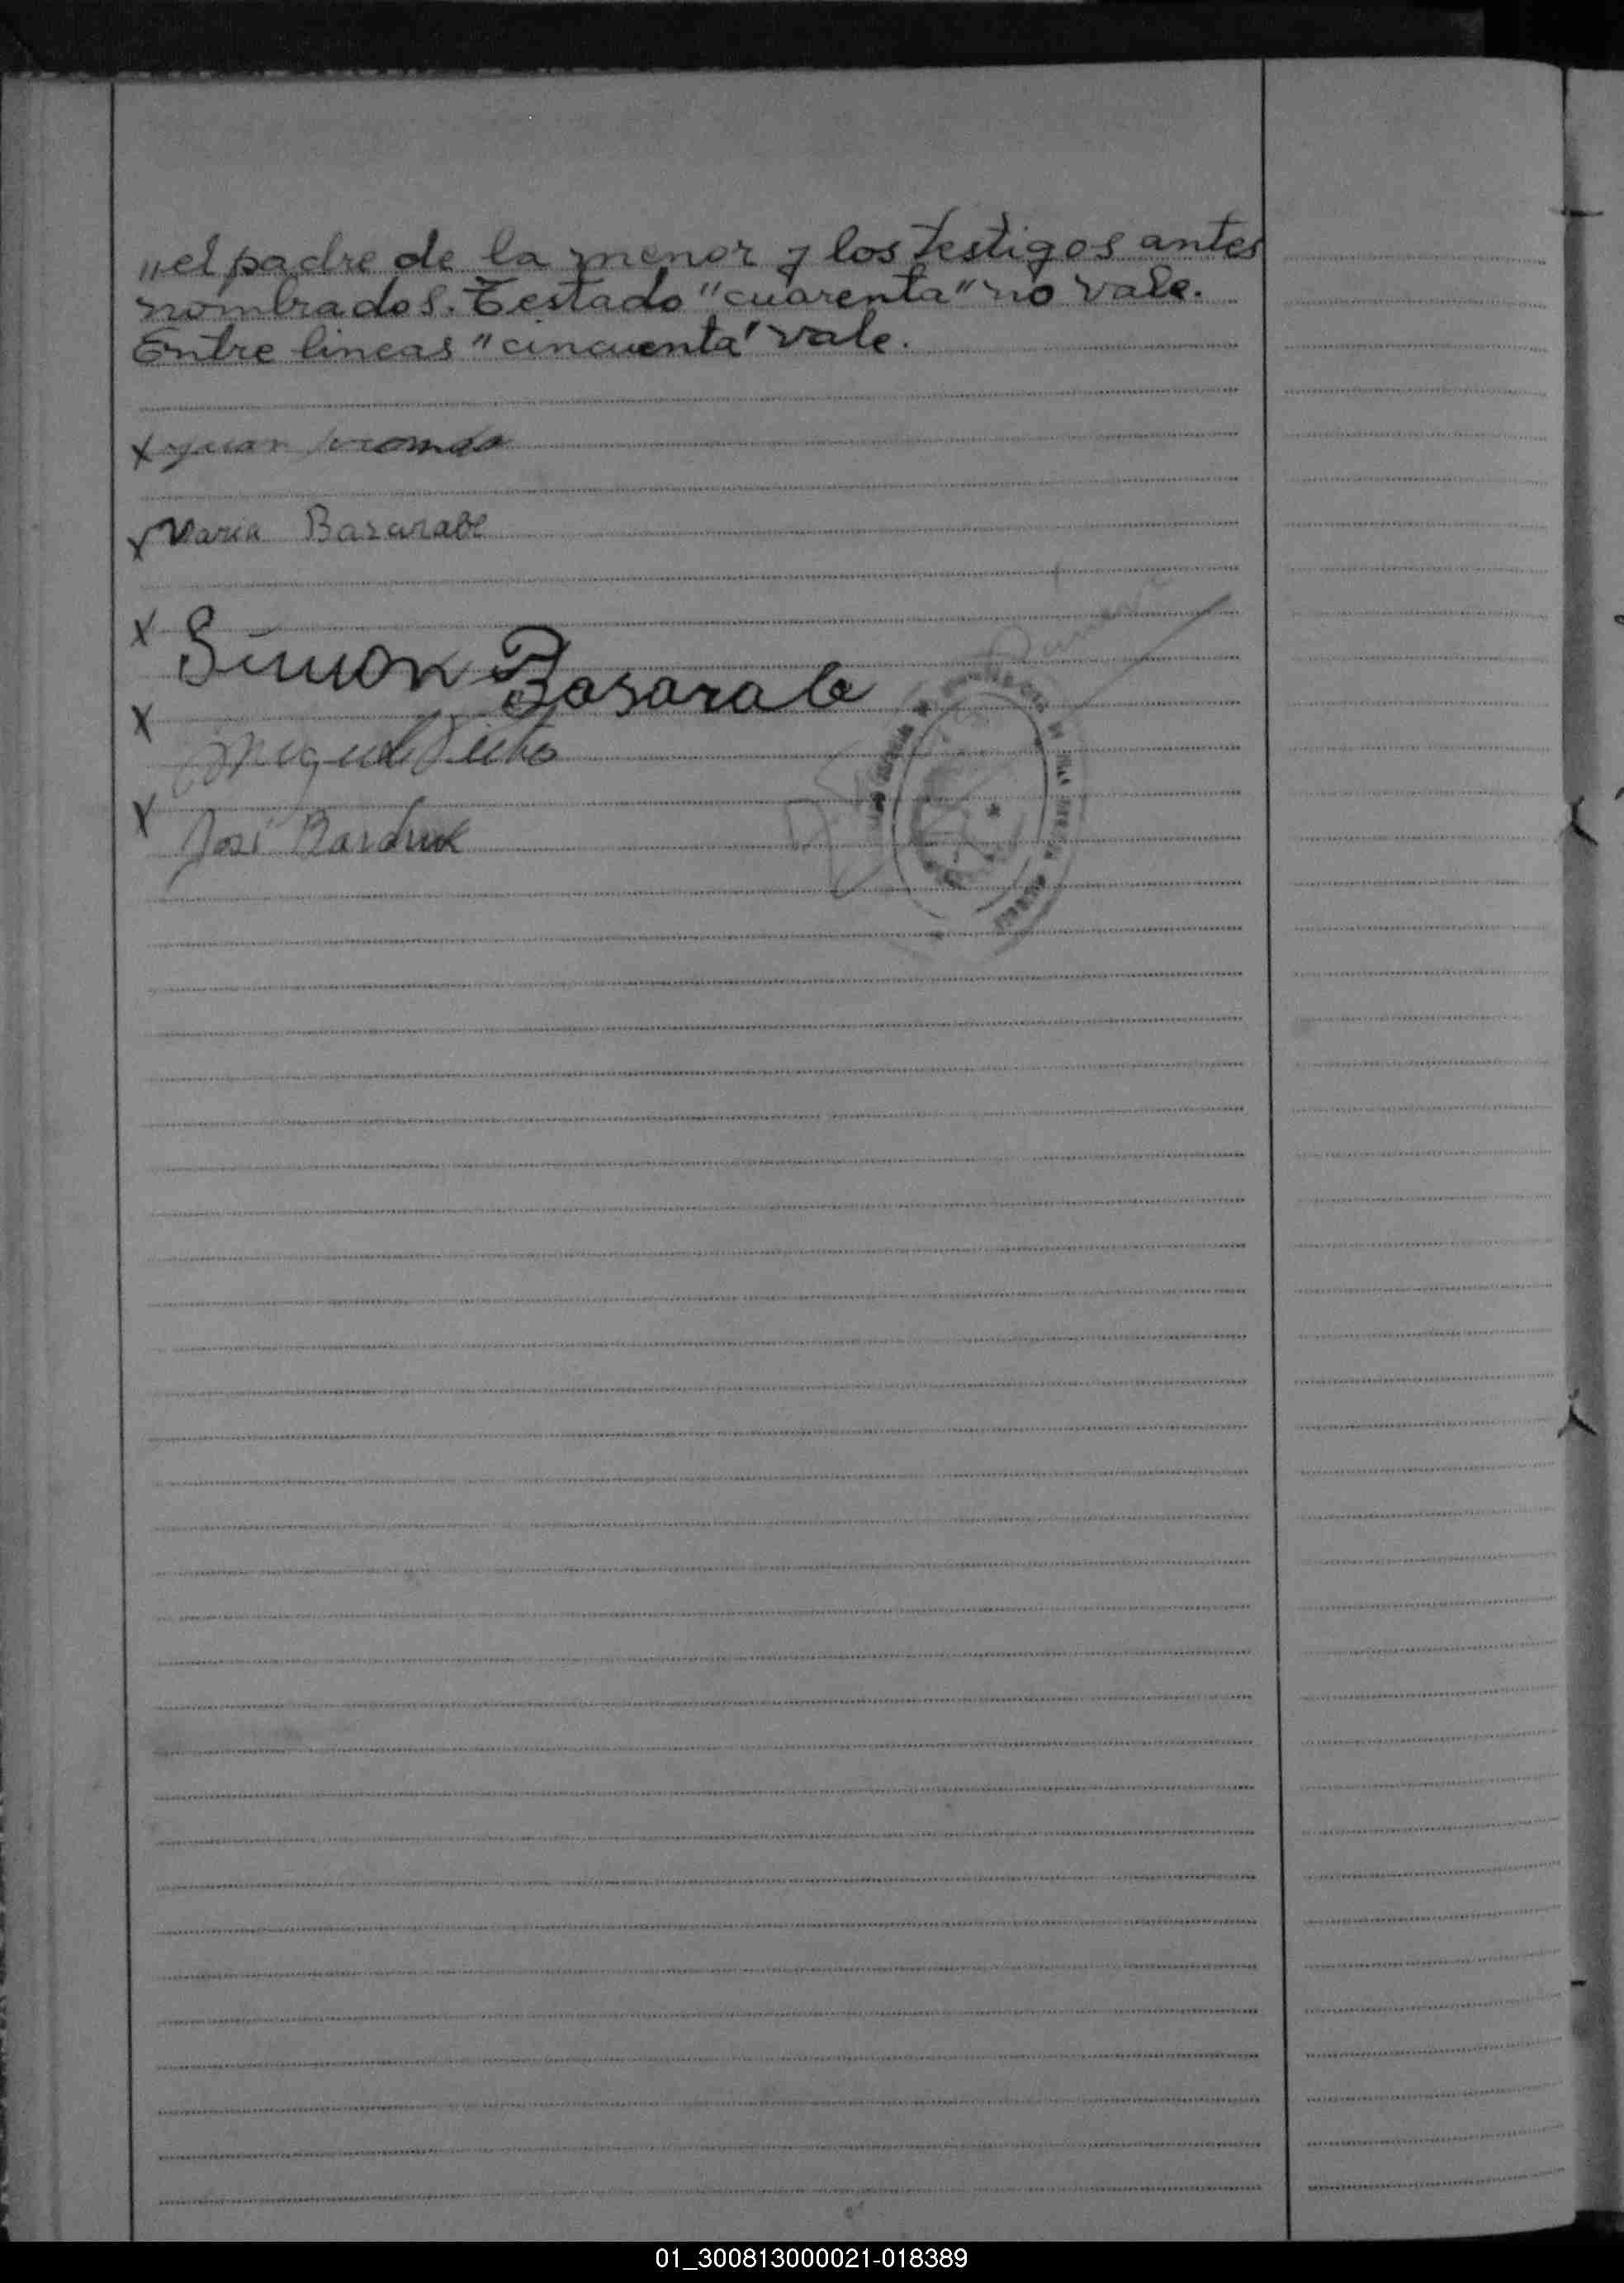 „el padre de la menor y los testigos antes
nombrados. Testado "cuarenta" no vale.
Entre lineas "cincuenta" vale.
x Juan
x Maria Basarabe
x
Simon Basarab
x
Miguel
x
José Bardruk
01_300813000021-018389